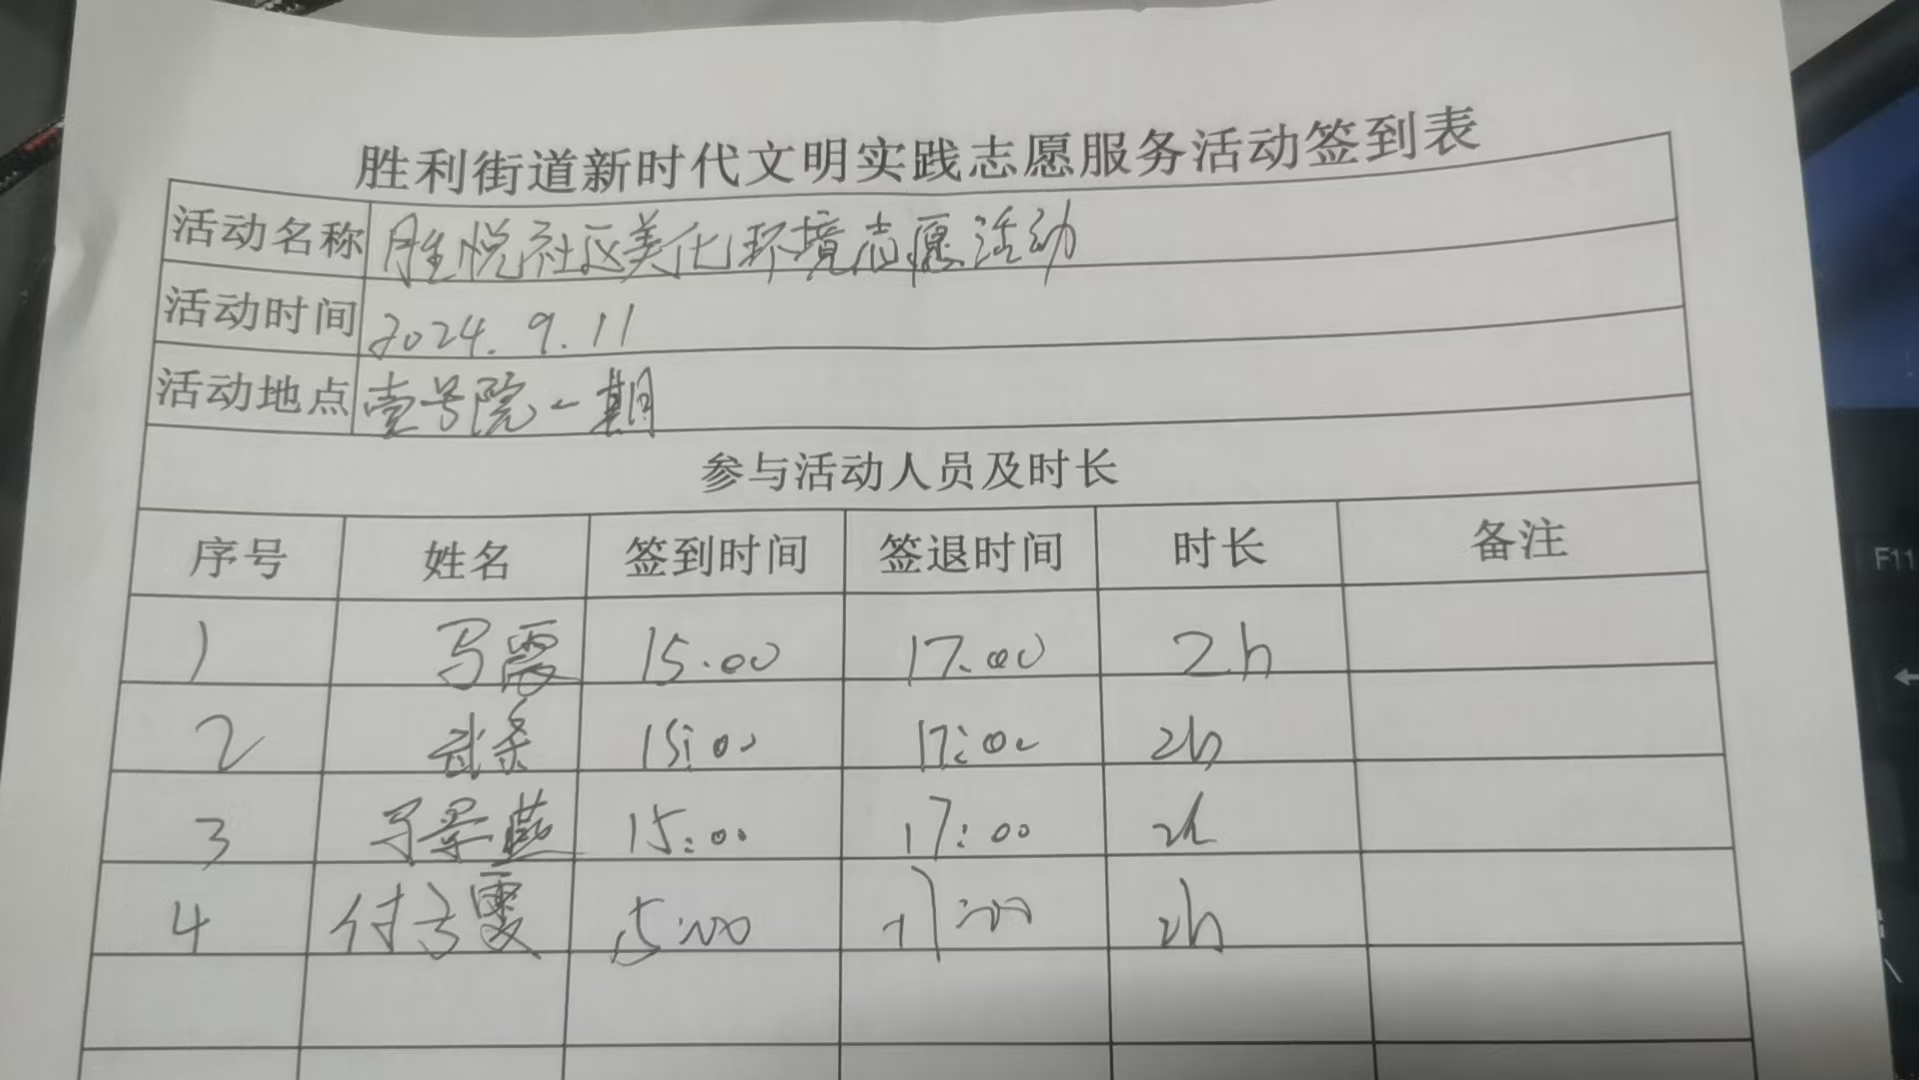 胜利街道新时代文明实践志愿服务活动签到表
活动名称 胜悦社区美化环境志愿活动
活动时间 2024.9.11
活动地点 壹号院一期
参与活动人员及时长
序号 姓名 签到时间 签退时间 时长 备注
1 马霞 15:00 17:00 2h
2 武条 15:00 17:00 2h
3 马景燕 15:00 17:00 2h
4 付 霞 15:00 17:00 2h
F11